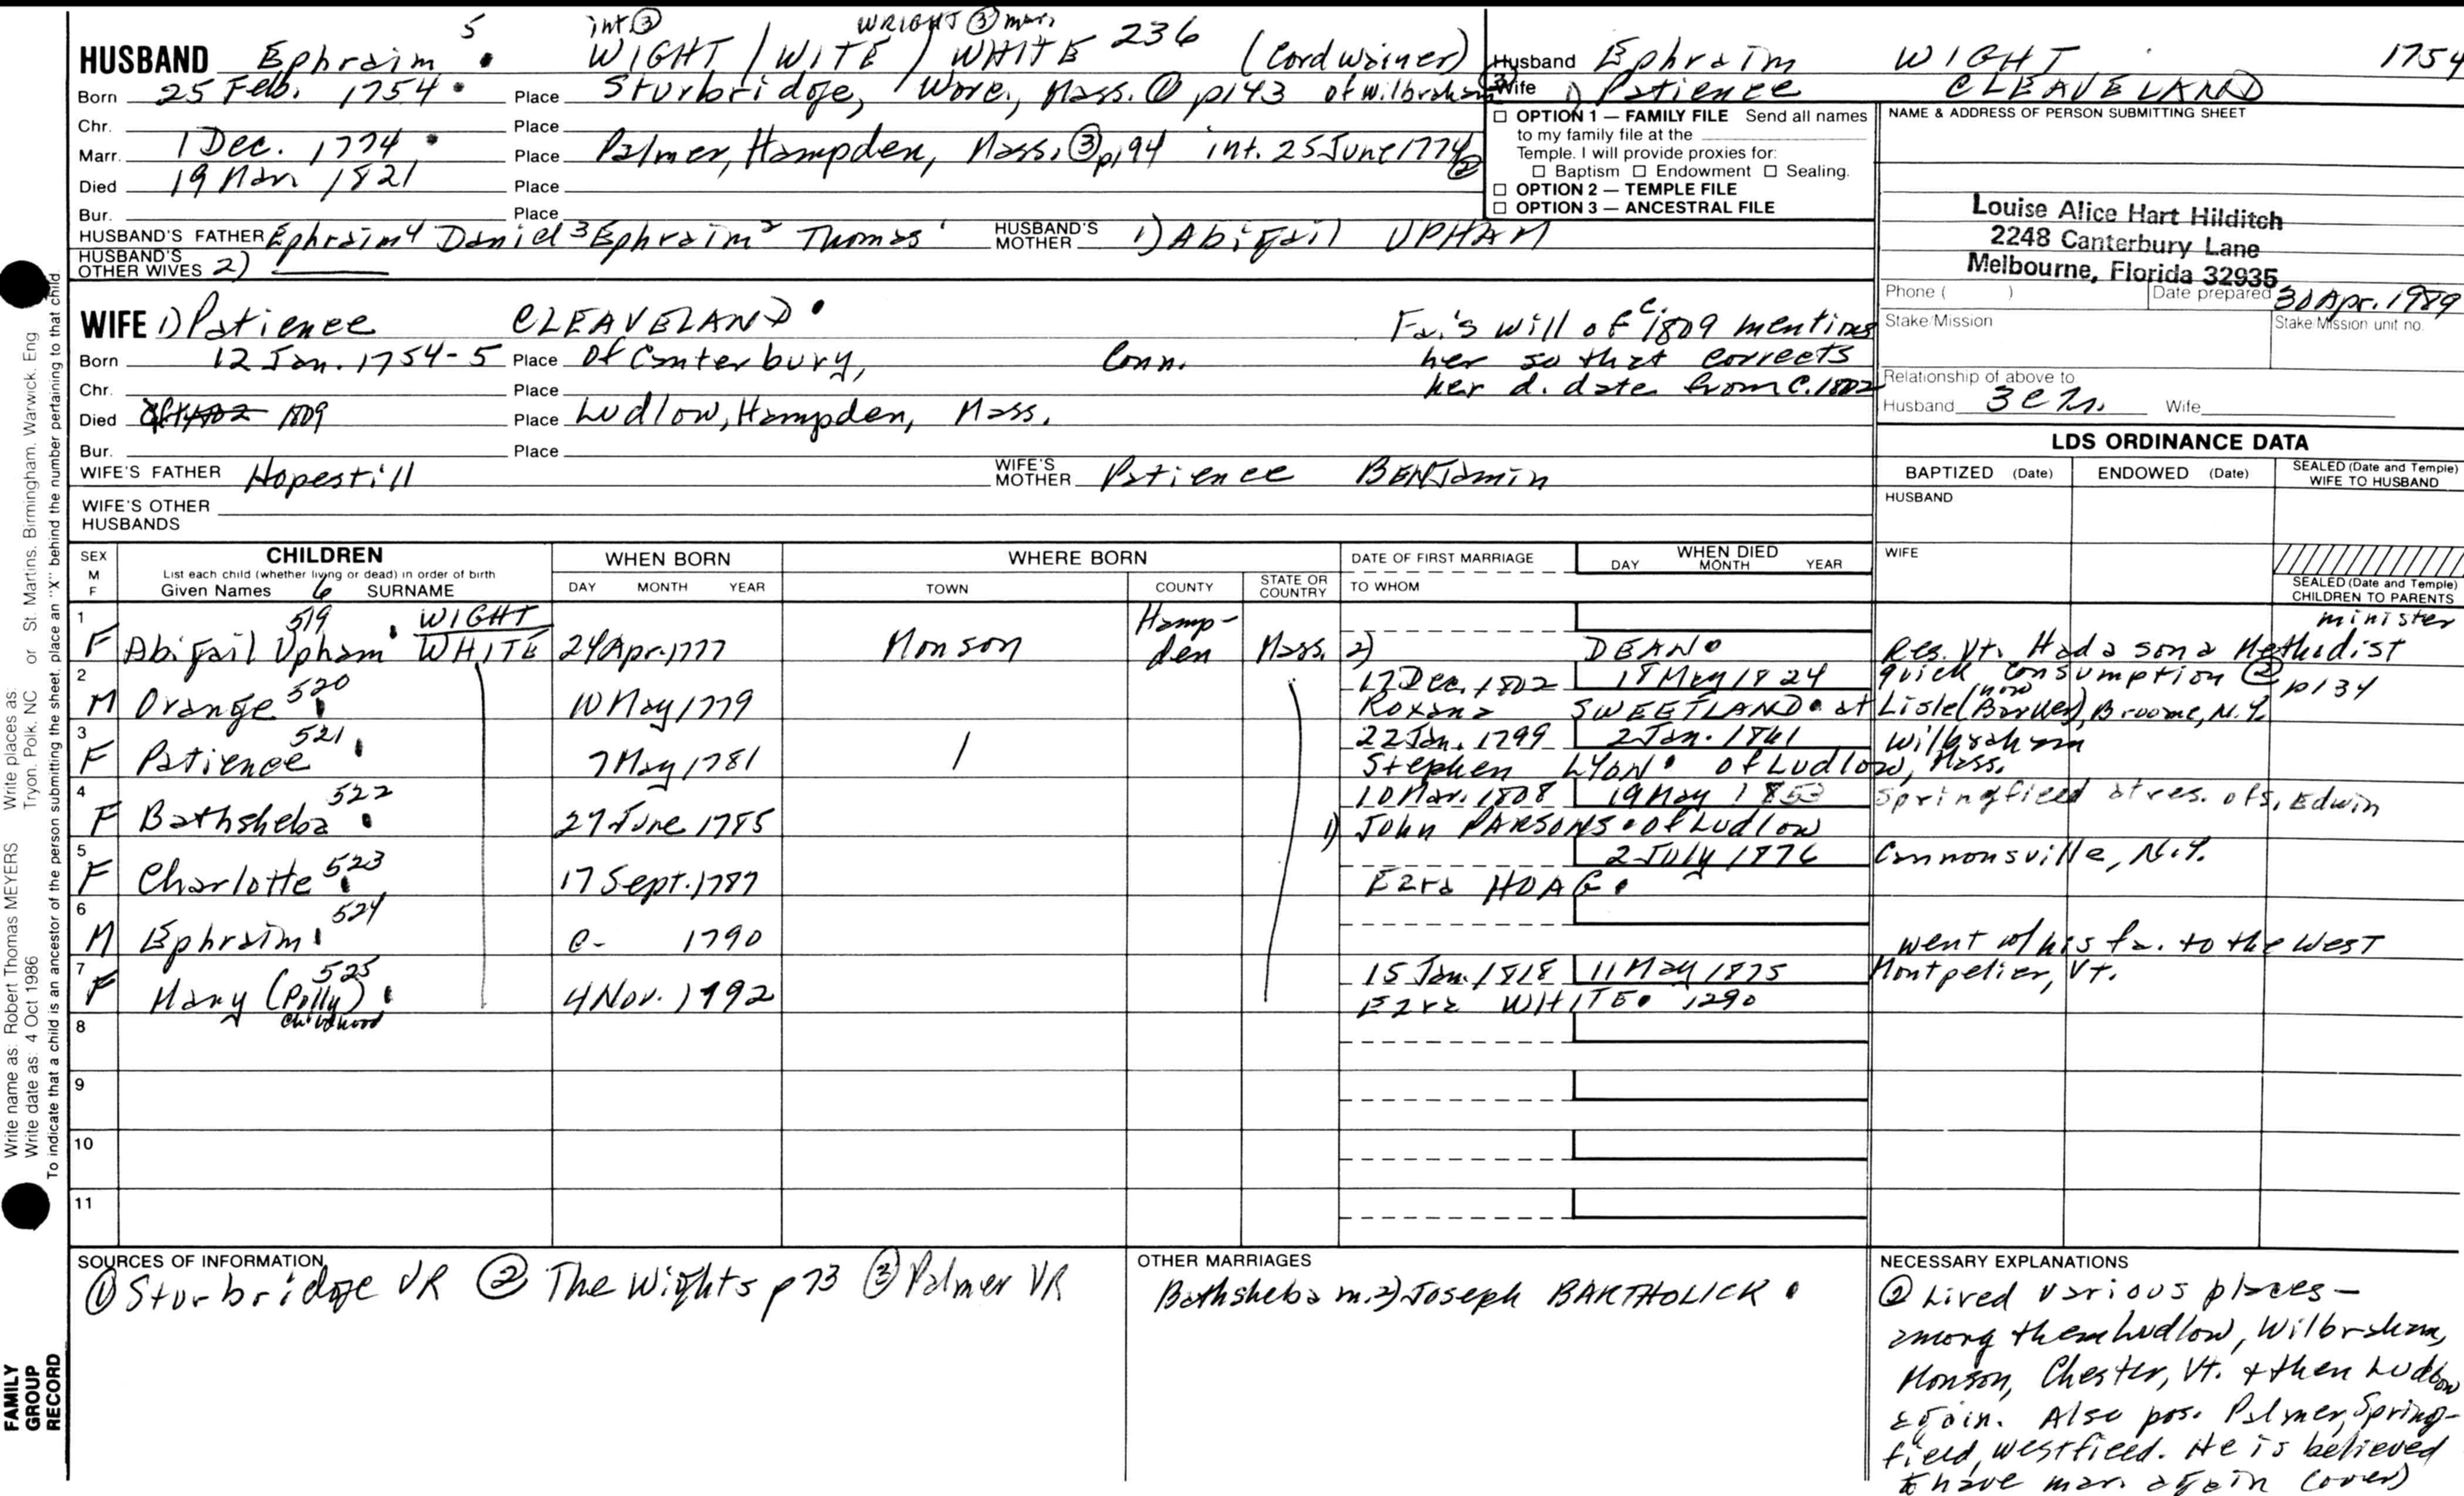 5 int ③ WRIGHT ③ mar.
HUSBAND Ephraim • WIGHT / WITE / WHITE 236 (Cordwainer)
Born 25 Feb. 1754 • Place Sturbridge, Worc., Mass. ① p143 of Wilbraham ③
Chr. Place
Marr. 1 Dec. 1774 • Place Palmer, Hampden, Mass. ③ p94 int. 25 June 1774 ②
Died 19 Mar 1821 Place
Bur. Place
HUSBAND'S FATHER Ephraim⁴ Daniel³ Ephraim² Thomas¹ HUSBAND'S MOTHER 1) Abigail UPHAM
HUSBAND'S OTHER WIVES 2)
Husband Ephraim WIGHT 1754
Wife 1) Patience CLEAVELAND
☐ OPTION 1 — FAMILY FILE Send all names
to my family file at the
Temple. I will provide proxies for:
☐ Baptism ☐ Endowment ☐ Sealing.
☐ OPTION 2 — TEMPLE FILE
☐ OPTION 3 — ANCESTRAL FILE
NAME & ADDRESS OF PERSON SUBMITTING SHEET
Louise Alice Hart Hilditch
2248 Canterbury Lane
Melbourne, Florida 32935
Phone ( ) Date prepared 30 Apr. 1989
Stake/Mission Stake/Mission unit no.
Relationship of above to
Husband 3C Wife
WIFE 1) Patience CLEAVELAND •
Born 12 Jan. 1754-5 Place Of Canterbury, Conn.
Chr. Place
Died 1809 Place Ludlow, Hampden, Mass.
Bur. Place
Fa.'s will of c. 1809 mentions
her so that corrects
her d. date from c. 1802
WIFE'S FATHER Hopestill WIFE'S MOTHER Patience BENJamin
WIFE'S OTHER HUSBANDS
LDS ORDINANCE DATA
BAPTIZED (Date) ENDOWED (Date) SEALED (Date and Temple) WIFE TO HUSBAND
HUSBAND
WIFE
SEALED (Date and Temple) CHILDREN TO PARENTS
SEX M F CHILDREN WHEN BORN WHERE BORN DATE OF FIRST MARRIAGE WHEN DIED
List each child (whether living or dead) in order of birth
Given Names 6 SURNAME DAY MONTH YEAR TOWN COUNTY STATE OR COUNTRY TO WHOM DAY MONTH YEAR
1 519 WIGHT Hamp- minister
F Abigail Upham • WHITE 24 Apr. 1777 Monson den Mass. 2) DEANO Res. Vt. Had a son a Methodist
2 520 17 Dec. 1802 18 May 1824 quick consumption ② p134
M Orange • 10 May 1779 Roxana SWEETLAND • at Lisle (now Barker), Broome, N.Y.
3 521 22 Jan. 1799 2 Jan. 1861 Wilbraham
F Patience • 7 May 1781 Stephen LYON • of Ludlow, Mass.
4 522 10 Mar. 1808 19 May 1853 Springfield at res. of s. Edwin
F Bathsheba • 27 June 1785 1) John PARSONS • of Ludlow
5 523 2 July 1876 Cannonsville, N.Y.
F Charlotte • 17 Sept. 1787 Ezra HOAG •
6 524
M Ephraim • c- 1790 went w/ his fa. to the West
7 525 15 Jan. 1818 11 May 1875 Montpelier, Vt.
F Mary (Polly) • 4 Nov. 1792 Ezra WHITE • 1290
childhood
8
9
10
11
SOURCES OF INFORMATION
① Sturbridge VR ② The Wights p 73 ③ Palmer VR
OTHER MARRIAGES
Bathsheba m. 2) Joseph BARTHOLICK •
NECESSARY EXPLANATIONS
② Lived various places —
among them Ludlow, Wilbraham,
Monson, Chester, Vt. & then Ludlow
again. Also pos. Palmer, Spring-
field, Westfield. He is believed
to have mar. again (over)
Write name as: Robert Thomas MEYERS Write places as: St. Martins, Birmingham, Warwick, Eng
Write date as: 4 Oct 1986 or Tryon, Polk, NC
To indicate that a child is an ancestor of the person submitting the sheet, place an "X" behind the number pertaining to that child
FAMILY
GROUP
RECORD